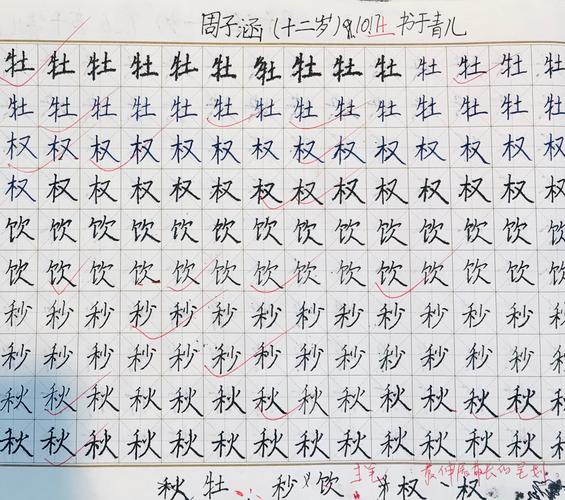 周子涵(十二岁) 书于青儿
牡牡牡牡牡牡牡牡牡牡牡牡牡牡
牡牡牡牡牡牡牡牡牡牡牡牡牡牡
权权权权权权权权权权权权权权
权权权权权权权权权权权权权权
饮饮饮饮饮饮饮饮饮饮饮饮饮饮
饮饮饮饮饮饮饮饮饮饮饮饮饮饮
秒秒秒秒秒秒秒秒秒秒秒秒秒秒
秒秒秒秒秒秒秒秒秒秒秒秒秒秒
秋秋秋秋秋秋秋秋秋秋秋秋秋秋
秋秋秋秋秋秋秋秋秋秋秋秋秋秋
主笔
秋 牡 秒 饮 权 权